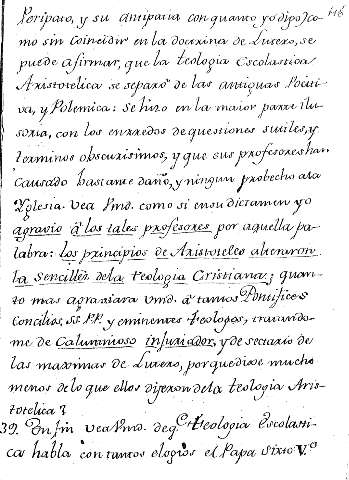 116
Peripato, y su antipatia con quanto yo digo; co-
mo sin coincidir en la doctrina de Lutero, se
puede afirmar, que la teologia Escolastica
Aristotelica se separò de las antiguas Positi-
va, y Polemica: se hizo en la maior parte ilu-
soria, con los enrredos de questiones sutiles, y
terminos obscurisimos, y que sus profesores han
causado bastante daño, y ningun probecho a la
Yglesia. Vea Vmd. como si en su dictamen yo
agravio à los tales profesores por aquella pa-
labra: los principios de Aristoteles alteraron
la sencillèz de la teologia Cristiana; quan-
to mas agraviara Vmd. à tantos Pontifices
Concilios, SS. PP. y eminentes teologos, tratando-
me de Calumnioso injuriador, y de sectario de
las maximas de Lutero, por que dixe mucho
menos de lo que ellos dijeron de la teologia Aris-
totelica?
39. En fin vea Vmd. de q.e teologia Escolasti-
ca habla con tantos elogios el Papa Sixto V.o